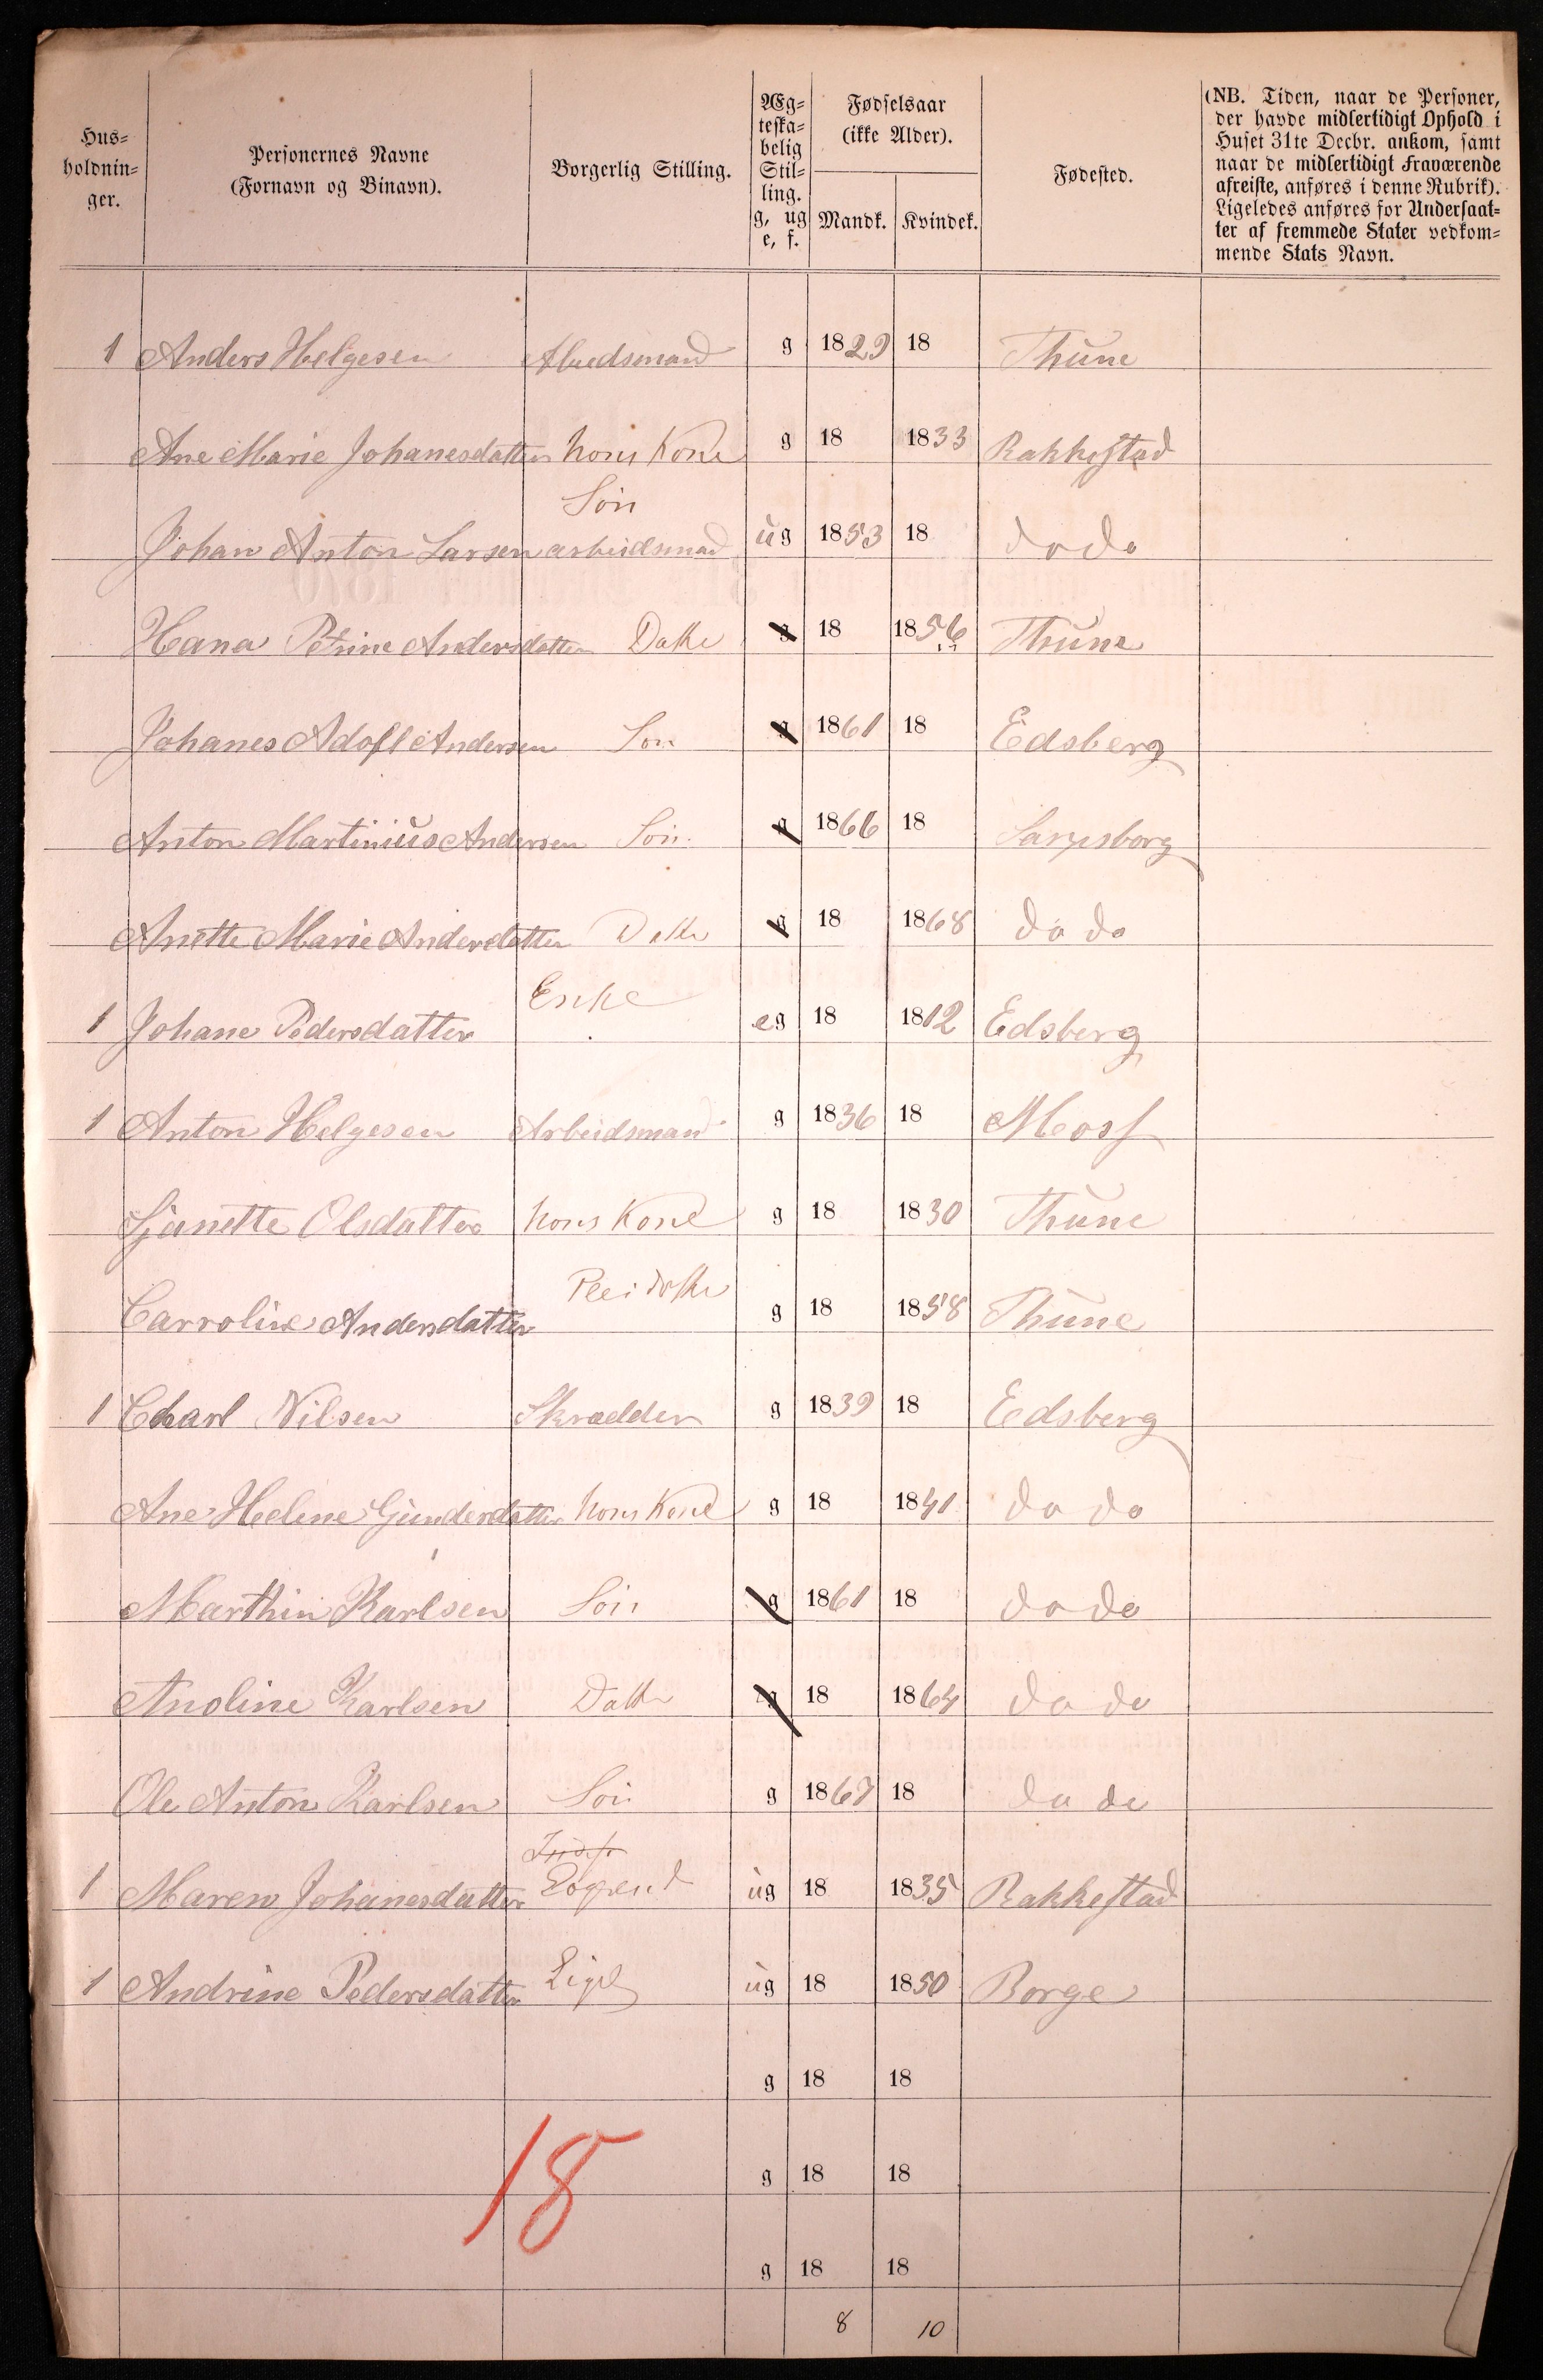 Hus-
holdnin-
ger.
Personernes Navne
(Fornavn og Binavn).
Borgerlig Stilling.
Æg-
teska-
belig
Stil-
ling.
g, ug
e, f.
Fødselsaar
(ikke Alder).
Mandk. Kvindek.
Fødested.
(NB. Tiden, naar de Personer,
der havde midlertidigt Ophold i
Huset 31te Decbr. ankom, samt
naar de midlertidigt Fraværende
afreiste, anføres i denne Rubrik).
Ligeledes anføres for Undersaat-
ter af fremmede Stater vedkom-
mende Stats Navn.
1 Anders Helgesen g 1829 18 Thune
Ane Marie Johanesdatter hans Kone g 18 1833 Rakkestad
Søn
Johan Anton Larsen arbeidsmad ug 1853 18 do do
Hana Petrine Andersdatter Datte g 18 1856 Thune
Johanes Adofl Andersen Søn g 1861 18 Edsberg
Anton Martinius Andersen Søn g 1866 18 Sarpsborg
Anette Marie Andersdatter Datte g 18 1868 do do
Enke
1 Johane Pedersdatter eg 18 1812 Edsberg
1 Anton Helgesen Arbeidsmand g 1836 18 Moss
Sjanette Olsdatter hans Kone g 18 1830 Thune
Plei datte
Carroline Andersdatter g 18 1858 Thune
1 Charl Nilsen Skrædder g 1839 18 Edsberg
Ane Helene Gundersdatter hans Kone g 18 1841 do do
Marthin Karlsen Søn g 1861 18 do do
Anoline Karlsen Datte g 18 1864 do do
Ole Anton Karlsen Søn g 1867 18 do do
1 Maren Johanesdatter Logerend ug 18 1835 Rakkestad
1 Andrine Pedersdatter Lige ug 18 1850 Borge
g 18 18
18
g 18 18
g 18 18
8 10